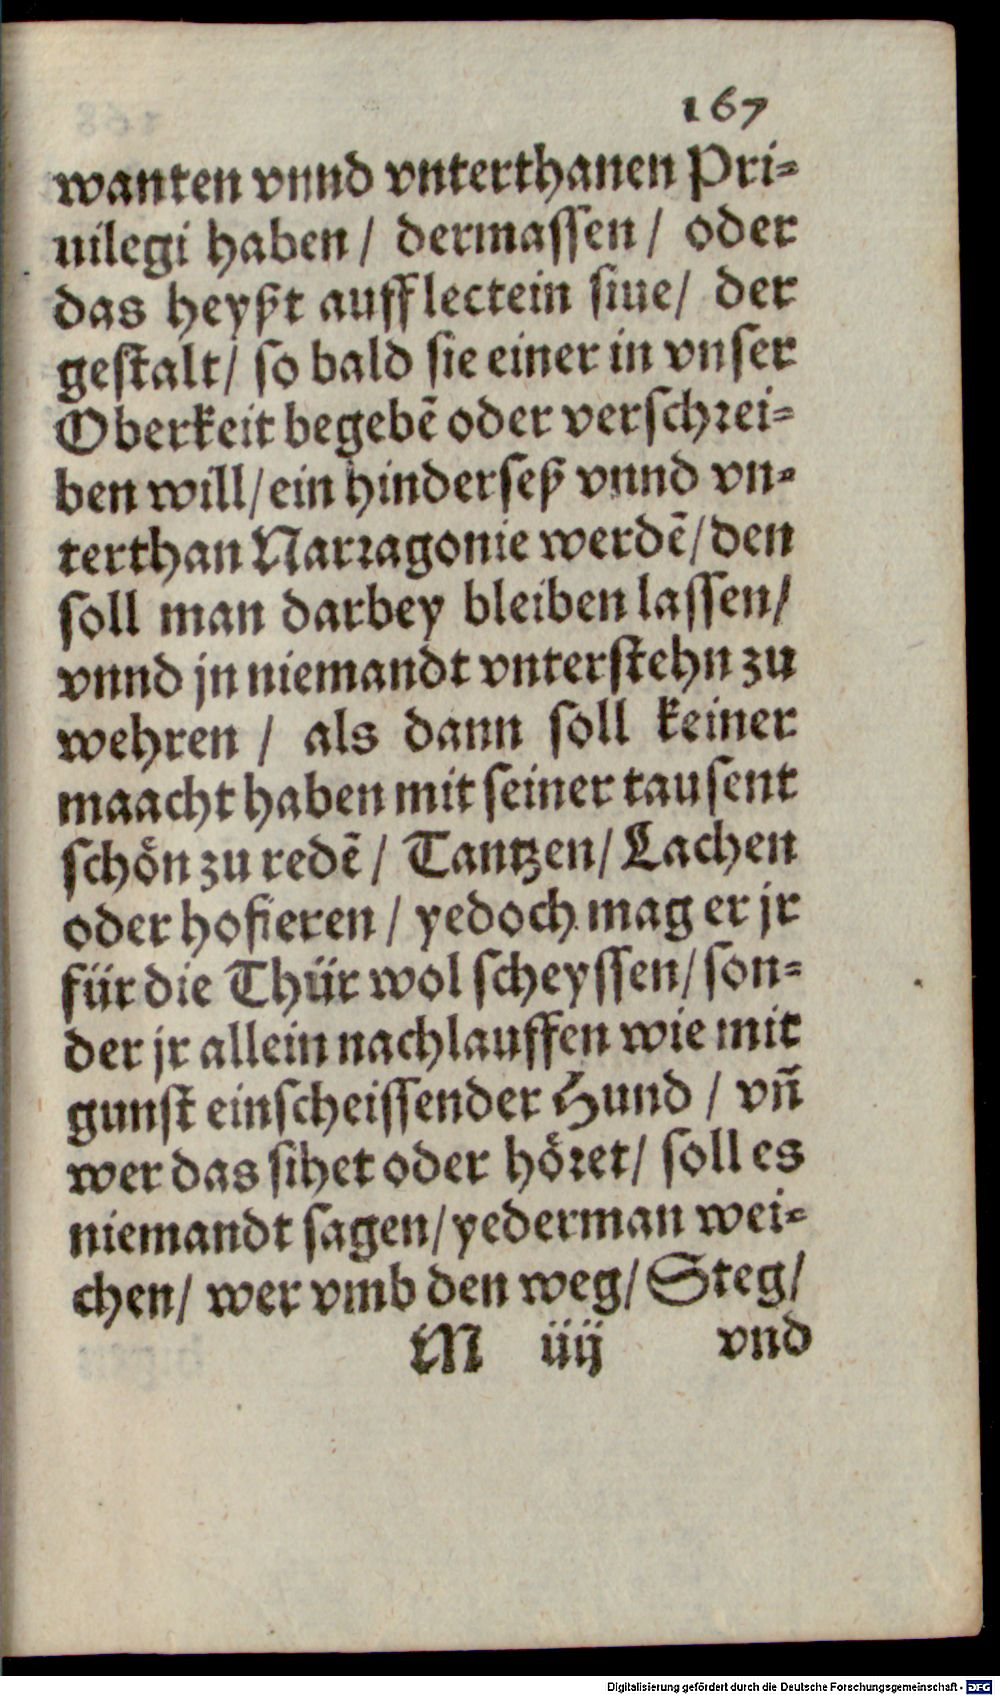 167
wanten vnnd vnterthanen Pri-
uilegi haben / dermassen / oder
das heyßt aufflectein siue / der
gestalt / so bald sie einer in vnser
Oberkeit begebẽ oder verschrei-
ben will / ein hinderseß vnnd vn-
terthan Narragonie werdẽ / den
soll man darbey bleiben lassen /
vnnd jn niemandt vnterstehn zu
wehren / als dann soll keiner
maacht haben mit seiner tausent
schön zu redẽ / Tantzen / Lachen
oder hofieren / yedoch mag er jr
für die Thür wol scheyssen / son-
der jr allein nachlauffen wie mit
gunst einscheissender Hund / vñ
wer das sihet oder höret / soll es
niemandt sagen / yederman wei-
chen / wer vmb den weg / Steg /
M iiij vnd
Digitalisierung gefördert durch die Deutsche Forschungsgemeinschaft - DFG